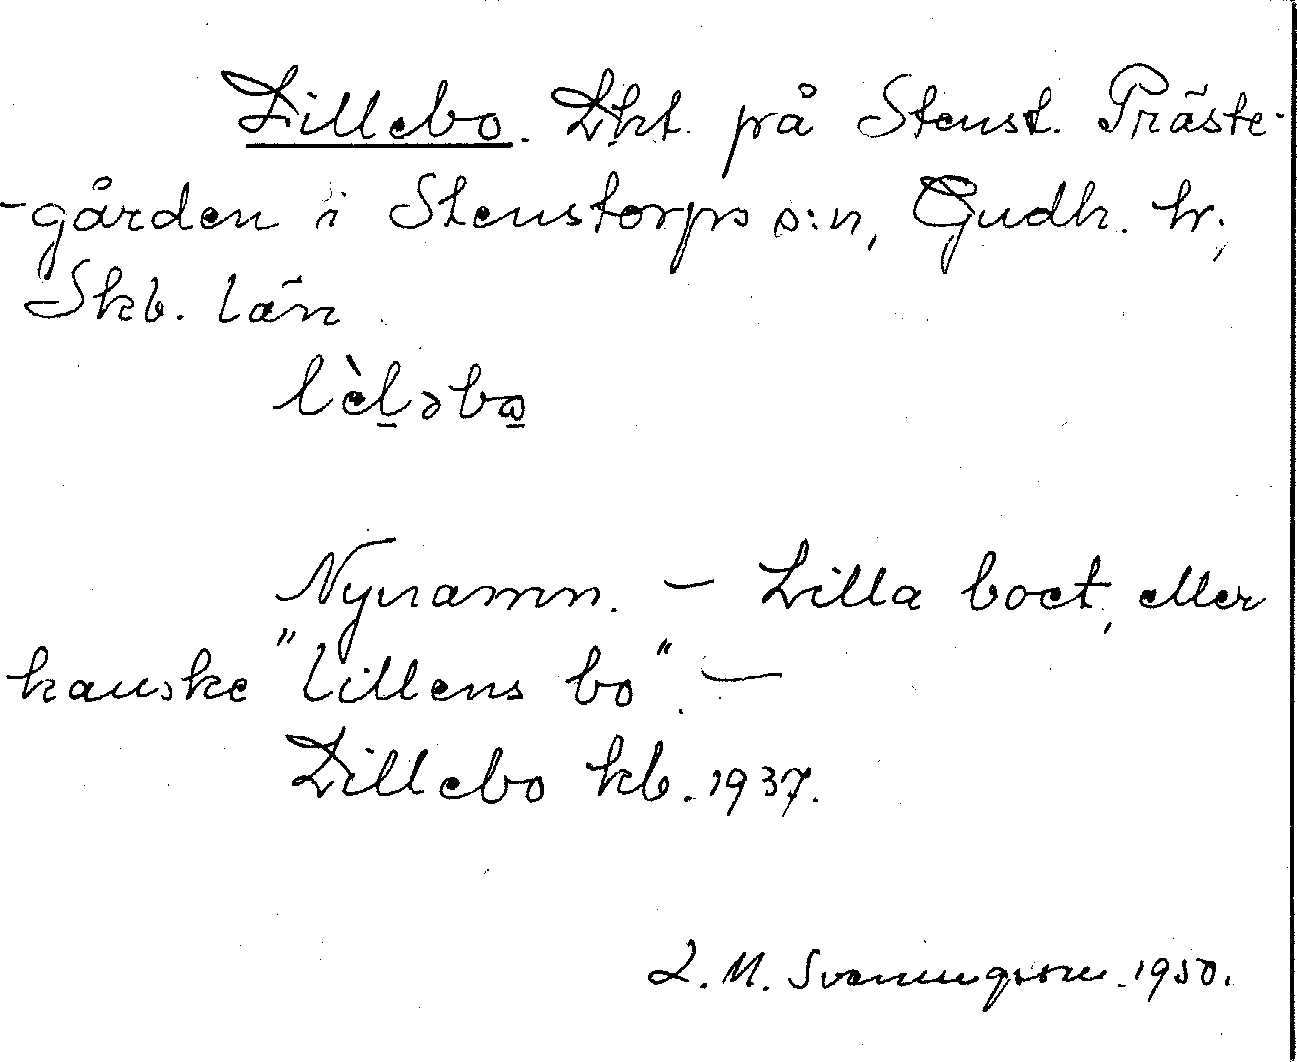 Lillebo. Lht. på Stenst. Präste-
-gården i Stenstorps s:n, Gudh. hr;
Skb. län
lèl̠əbω̠
Nynamn. – Lilla boet, eller
kanske "lillens bo". –
Lillebo kb. 1937.
L. M. Svenungsson. 1950.